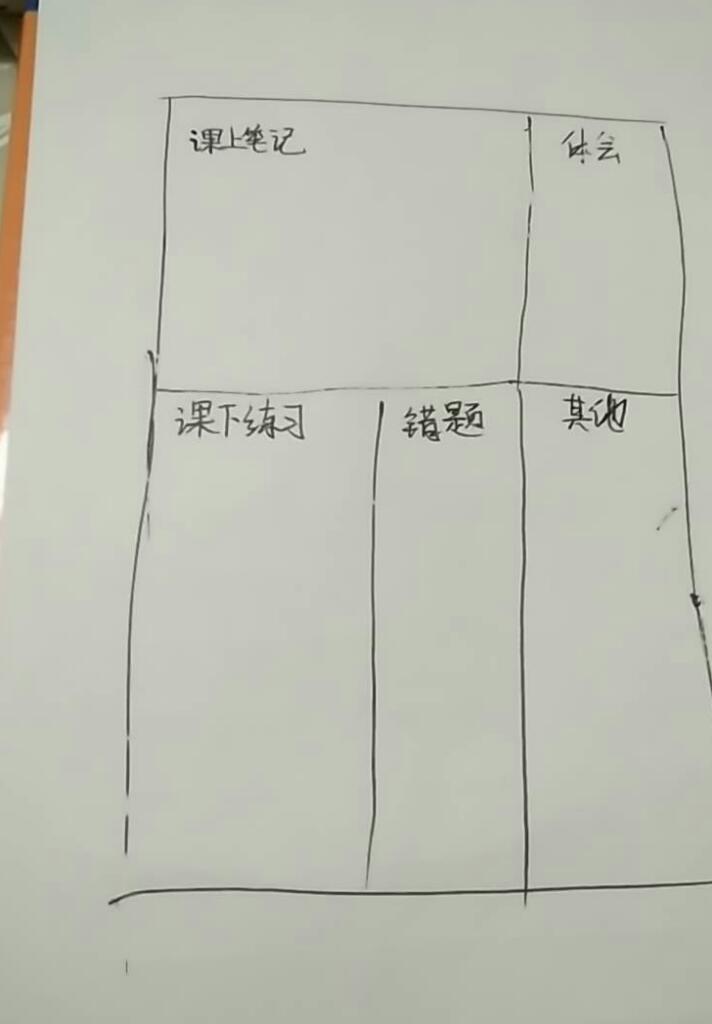 课上笔记
体会
课下练习
错题
其他